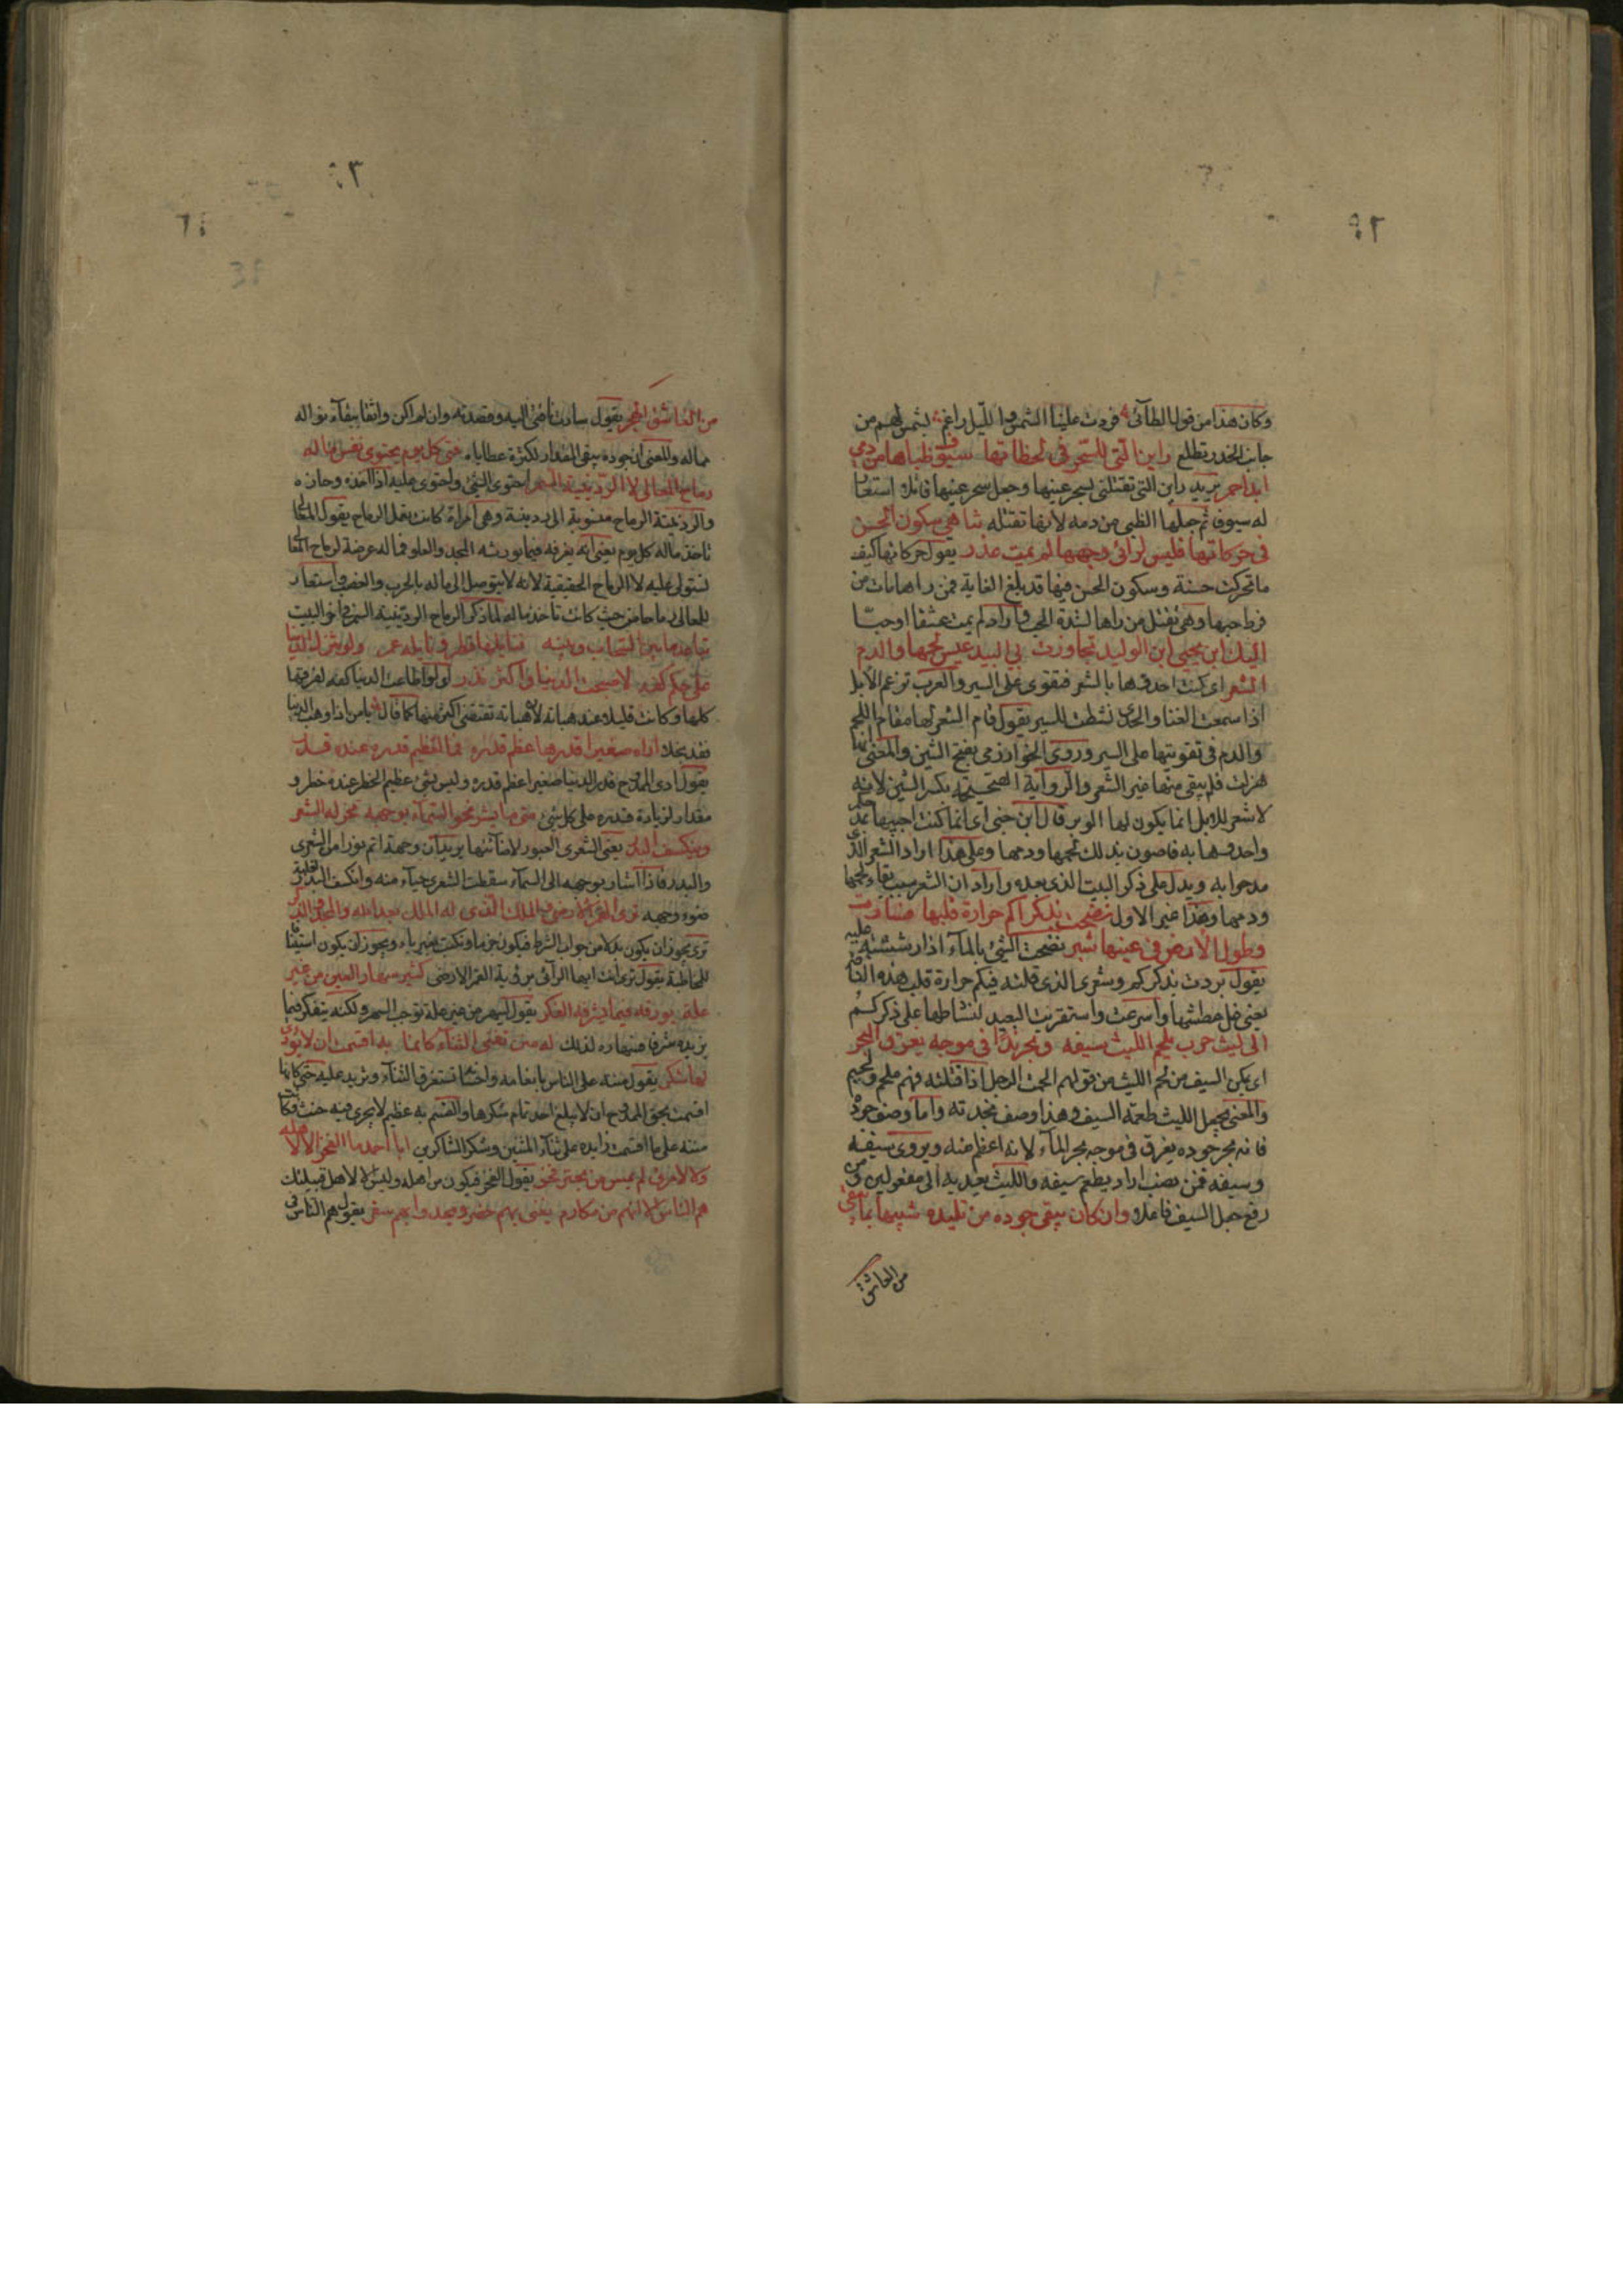 وكان هذا من قول الطائي فردت علينا الشمس والليل راغم بشمس لهم من
جانب الخدر تطلع رأين التي للسحر في لحظاتها سيوف ظباها من دمي
ابدا حمر يريد رأين التي تقتلني بسحر عينها وجعل سحر عينها قاتلا استعار
له سيوفا ثم جعلها الظبى من دمه لانها تقتله تناهى سكون الحسن
في حركاتها فليس لرائي وجهها لم يمت عذر يقول حركاتها كيف
ما تحركت حسنة وسكون الحسن فيها قد بلغ الغاية فمن راها مات من
فرط حبها وهي تقتل من راها لشدة الحب فاذا لم يمت عشقا او حبا
اليك ابن يحيى ابن الوليد تجاوزت بي البيد عيس لحمها والدم
الشعر اي كنت احدوها بالشعر فتقوى على السير والعرب تزعم الابل
اذا سمعت الغنا والحدى نشطت للسير يقول قام الشعر لها مقام اللحم
والدم في تقويتها على السير وروى الخوارزمي بفتح الشين والمعنى انها
هزلت فلم يبقى منها غير الشعر والرواية الصحيحة بكسر الشين لانه
لا شعر للابل انما يكون لها الوبر قال ابن جنى اي انما كنت احييها
واحدوها به فاصون بذلك لحمها ودمها وعلى هذا اراد الشعر الذي
مدحوا به ويدل على ذكر البيت الذي بعده واراد ان الشعر سبب بقاء لحمها
ودمها وهذا غير الاول نضحت بذكراكم حرارة قلبها فسارت
وطول الارض في عينها شبر نضحت الشئ بالمآء اذا رششته عليه
يقول بردت بذكركم وشعري الذي قلته فيكم حرارة قلب هذه الناقة
يعنى غل عطشها واسرعت واستقربت البعيد لنشاطها على ذكركم
الى ليث حرب يلحم الليث سيفه وبحر ندا في موجه يغرق البحر
اي يمكن السيف من لحم الليث من قولهم الحمت الرجل اذا قتلته فهم ملحم ولحيم
والمعنى يجعل الليث طعمة السيف وهذا وصف نجدته واما وصف جوده
فانه بحر جوده يغرق في موجه بحر المآء لانه اعظم منه ويروى سيفه
وسيفه فمن نصب اراد يطعم سيفه والليث بعيد به الى مفعولين ومن
رفع جعل السيف فاعلا وان كان يبقى جوده من تليده شبيها بما يبقى
من العاشق
من العاشق الهجر يقول سارت ناقتي اليه وقصدته وان لم اكن واثقا ببقآء نواله
ماله والمعنى ان جوده يبقى المقدار لكثرة عطاياه فتى كل يوم يحتوى نفس ماله
رماح المعالى لا الردينية السمر احتوى الشئ واحتوى عليه اذا اخذه وحازه
والردينية الرماح منسوبة الى ردينة وهي امراة كانت تعمل الرماح يقول المعالى
تاخذ ماله كل يوم يعنى انه يفرقه فيما يورثه المجد والعلو فماله عرضة لرماح المعالى
تستولى عليه لا الرماح الحقيقية لانه لا يتوصل الى ماله بالحرب والغصب واستعار
للمعالى رماحا من حيث كانت تاخذ ماله لما ذكر الرماح الردينية السمر في اخر البيت
تباعد ما بين السحاب وبينه فنايلها قطر ونايله غمر ولو تنزل الدنيا
على حكم كفه لاصبحت الدنيا واكثرها نزر اي لو اطاعت الدنيا كفه لفرقها
كلها وكانت قليلة عند هباته لان هباته تقتضى اكثر منها كما قال يا من اذا وهب الدنيا
فقد بخلا اراه صغيرا قدرها عظم قدره فما لعظيم قدره عنده قدر
يقول ارى الممدوح قدر الدنيا صغيرا عظم قدره وليس بشئ عظيم الخطر عنده خطر و
مقدار لزيادة قدره على كل شئ متى ما يشر نحو السمآء بوجهه تخر له الشعرى
وينكسف البدر يعنى الشعرى العبور لانها اتمها يريد ان وجهه اتم نورا من الشعرى
والبدر فاذا اشار بوجهه الى السمآء سقطت الشعرى حيآء منه وانكسف البدر لغلبة
ضوء وجهه ترى القمر الارضي والملك الذي له الملك بعد الله والمجد والذكر
ترى يجوز ان يكون بدلا من جواب الشرط فيكون جزما وتكتب بغير ياء ويجوز ان يكون استيفاءا
للمخاطبة يقول ترى انت ايها الرائى برؤية القمر الارضى كثير سهاد العين من غير
علة يؤرقه فيما يشرفه الفكر يقول يسهر من غير علة توجب السهر ولكنه يتفكر فيما
يزيده شرفا فسهاده لذلك له منن تفنى الثنآء كانما به اقسمت ان لا يؤدى
لها شكر يقول مننه على الناس بانعامه واحسانه تستغرق الثنآء وتزيد عليه حتى كانها
اقسمت بحق الممدوح ان لا يبلغ احد تام شكرها والقسم به عظيم لا يجرى فيه حنث فكانت
مننه على ما اقسمت زايدة على ثنآء المثنين وشكر الشاكرين ابا احمد ما الفخر الا لاهله
وما لامرئ لم يمس من بحتر فخر يقول الفخر فيكون من اهله وليس الا لاهل قبيلتك
هم الناس الا انهم من مكارم يغنى بهم حضر ويحدوا بهم سفر يقول هم الناس في